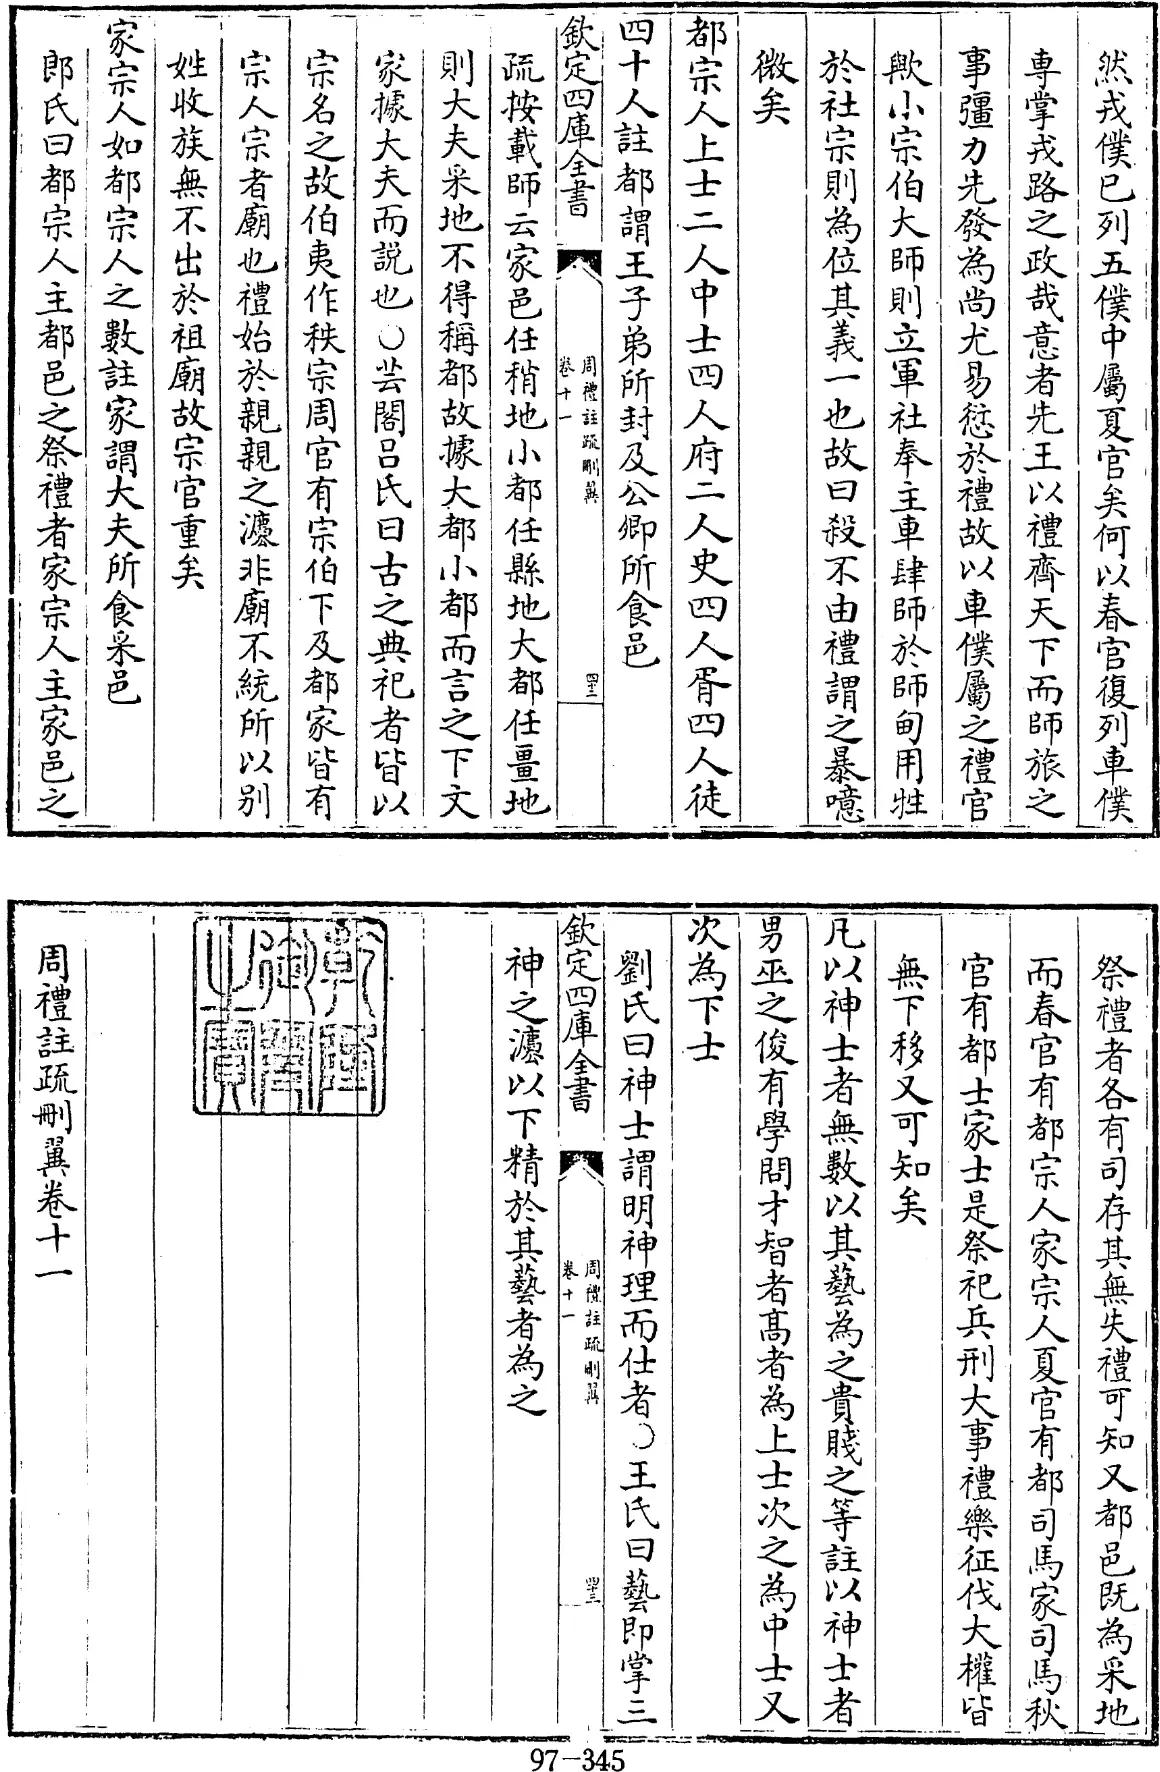 然戎僕已列五僕中屬夏官矣何以春官復列車僕
專掌戎路之政哉意者先王以禮齊天下而師旅之
事彊力先發為尚尤易愆於禮故以車僕屬之禮官
歟小宗伯大師則立軍社奉主車肆師於師甸用牲
於社宗則為位其義一也故曰殺不由禮謂之暴噫
微矣
都宗人上士二人中士四人府二人史四人胥四人徒
四十人註都謂王子弟所封及公卿所食邑
欽定四庫全書
周禮註疏刪翼
卷十一
四十二
疏按載師云家邑任稍地小都任縣地大都任畺地
則大夫采地不得稱都故據大都小都而言之下文
家據大夫而說也○芸閣呂氏曰古之典祀者皆以
宗名之故伯夷作秩宗周官有宗伯下及都家皆有
宗人宗者廟也禮始於親親之灋非廟不統所以別
姓收族無不出於祖廟故宗官重矣
家宗人如都宗人之數註家謂大夫所食采邑
郎氏曰都宗人主都邑之祭禮者家宗人主家邑之
祭禮者各有司存其無失禮可知又都邑既為采地
而春官有都宗人家宗人夏官有都司馬家司馬秋
官有都士家士是祭祀兵刑大事禮樂征伐大權皆
無下移又可知矣
凡以神士者無數以其藝為之貴賤之等註以神士者
男巫之俊有學問才智者高者為上士次之為中士又
次為下士
劉氏曰神士謂明神理而仕者○王氏曰藝即掌三
欽定四庫全書
周禮註疏刪翼
卷十一
四十三
神之灋以下精於其藝者為之
乾隆御覽之寶
周禮註疏刪翼卷十一
97-345